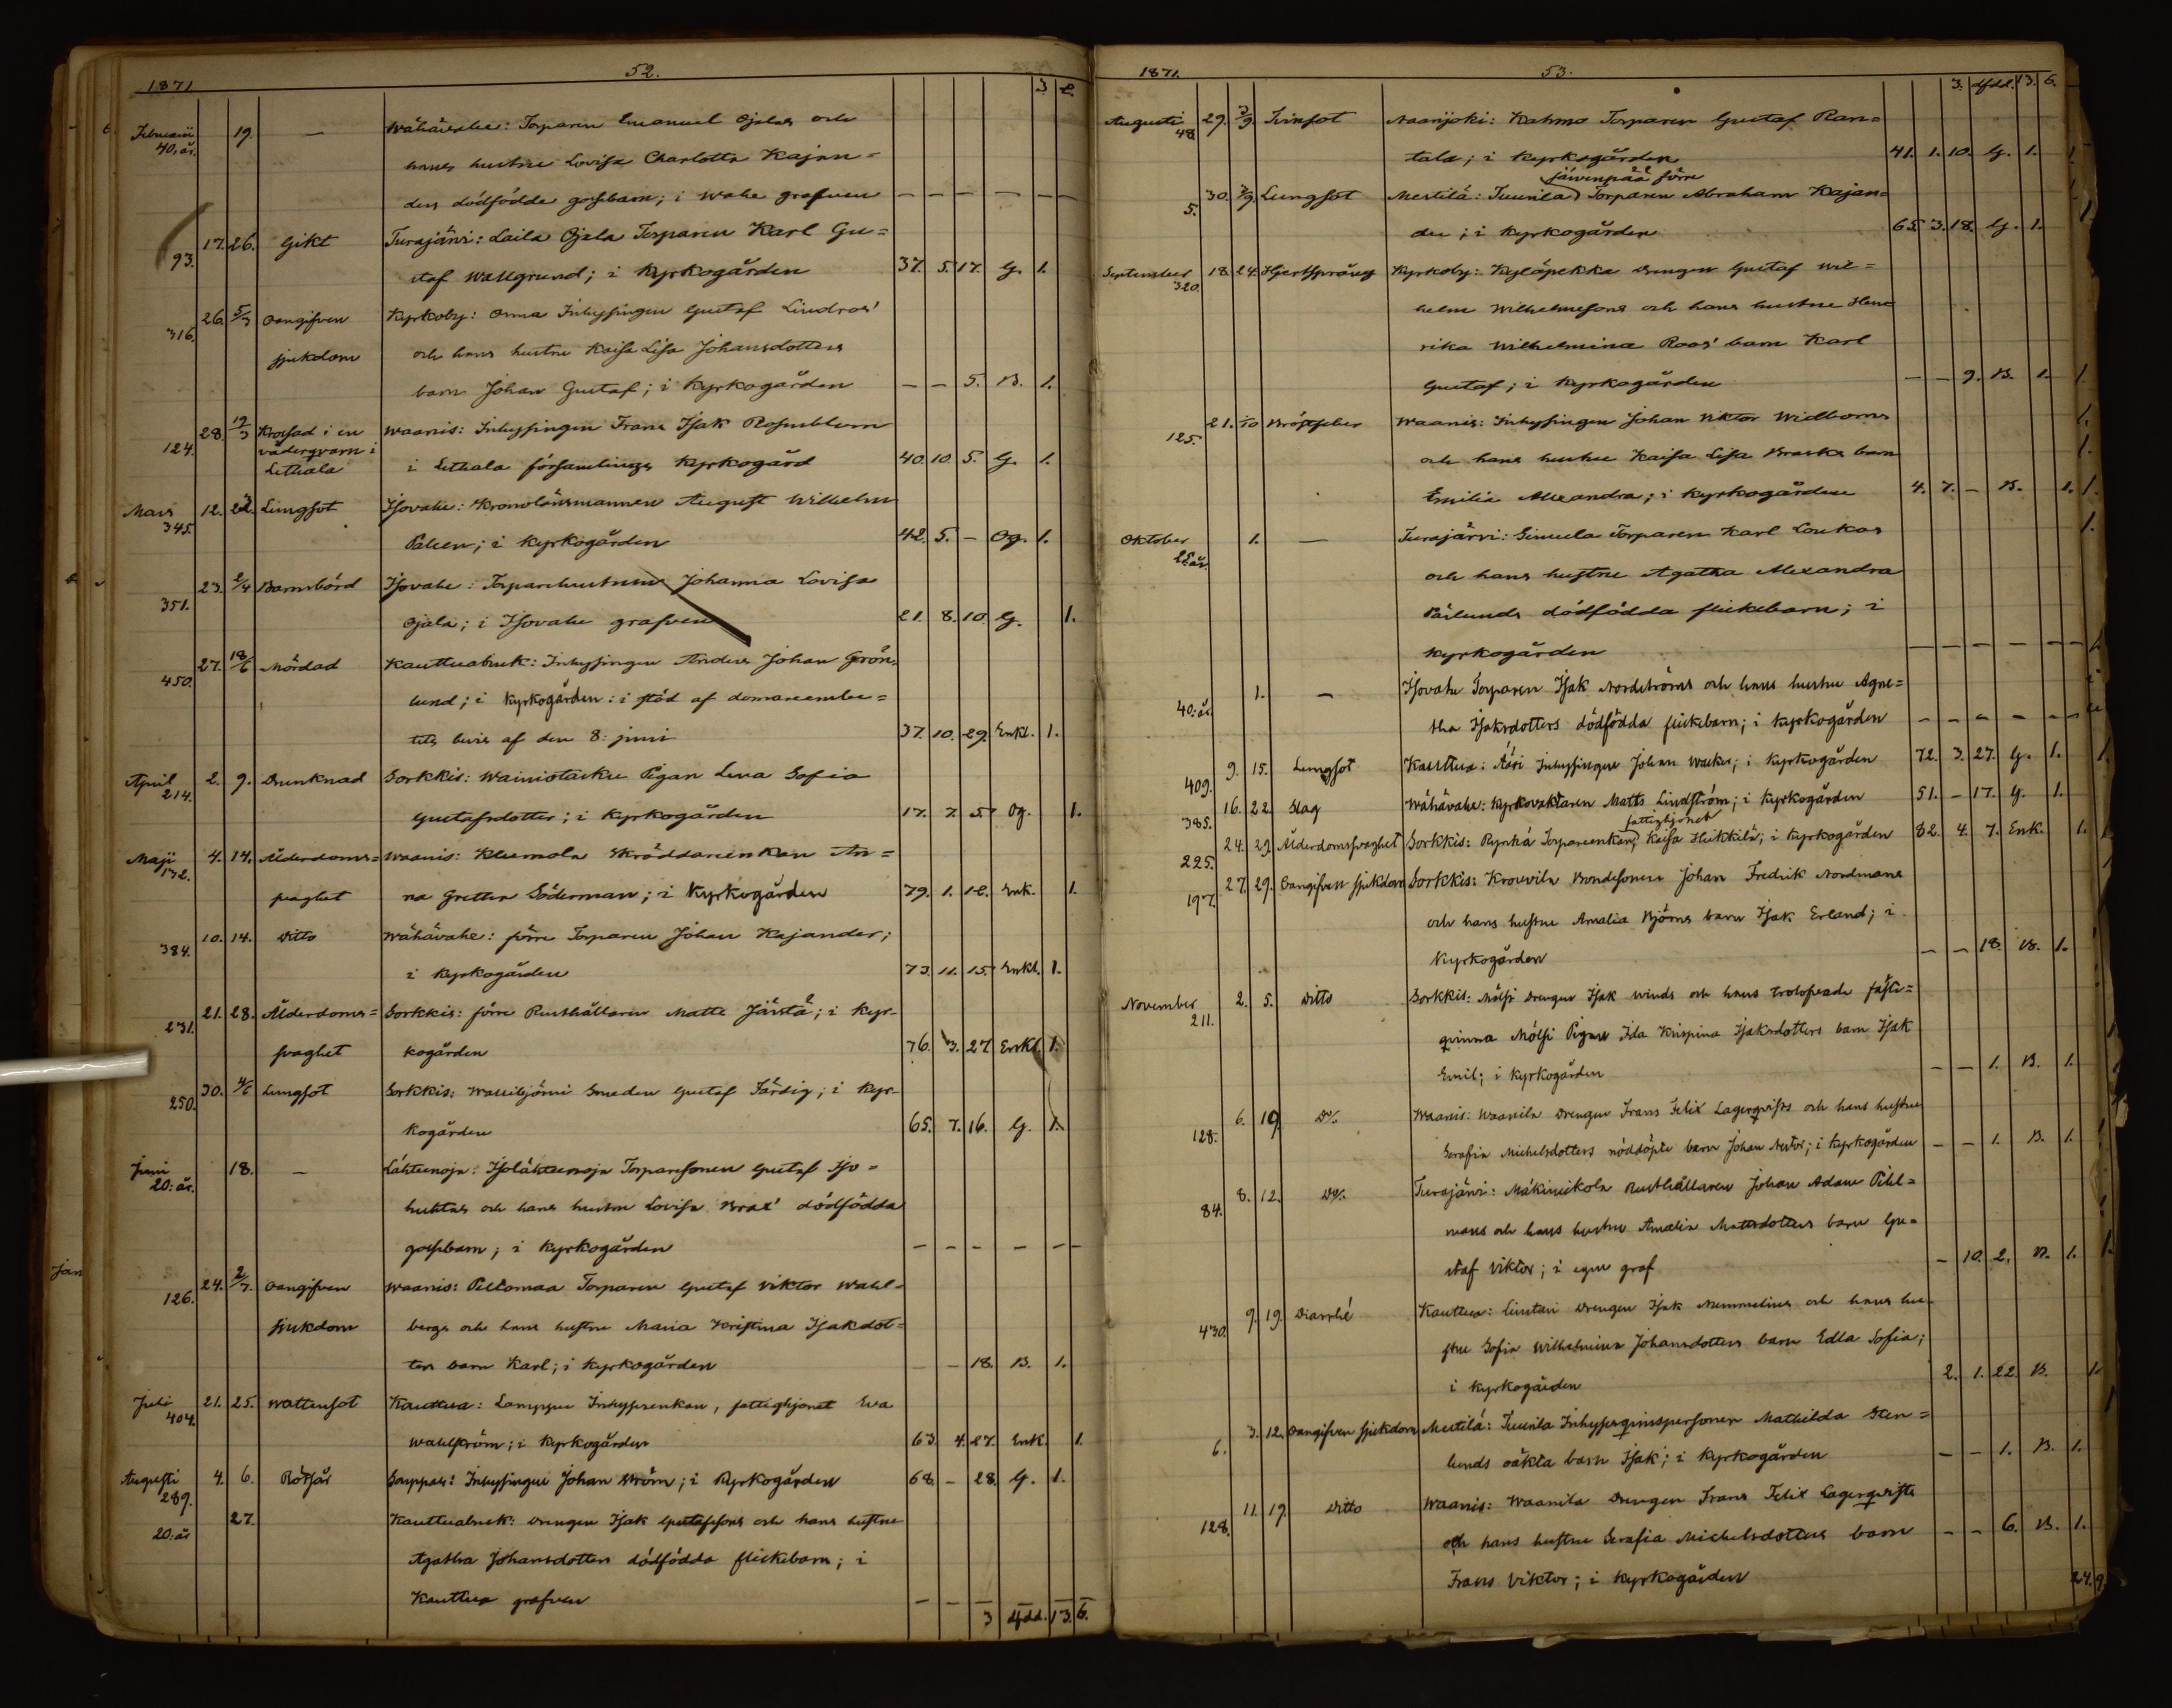 1871 52.
3 2.
Februarii 19. — Wähävahe: Torparen Emanuel Ojalas och
40. år. hans hustru Lovisa Charlotta Kajan=
ders dödfödda gossebarn; i Wahe grafven — — — — — —
17. 26. Gikt Turajärvi: Laila Ojala Torparen Karl Gu=
93. staf Wallgrund; i Kyrkogården 37. 5. 17. G. 1.
26. 5/3 Oangifven Kyrkoby: Inhysingen Gustaf Lindros'
316. sjukdom och hans hustru Kaisa Lisa Johansdotters
barn Johan Gustaf; i Kyrkogården — — 5. B. 1.
28. 12/3 Krossad i en Waanis: Inhysingen Frans Isak Rosenblom
124. väderqvarn i
Lethala i Lethala församlings Kyrkogård 40. 10. 5. G. 1.
Mars 12. 22. Lungsot Isovahe: Kronolänsmannen August Wilhelm
345. Palen; i Kyrkogården 42. 5. — Og. 1.
23. 2/4 Barnsbörd Isovahe: Torparehustrun Johanna Lovisa
351. Ojala; i Isovahe grafven 21. 8. 10. G. 1.
27. 18/6 Mördad Kauttuabruk: Inhysingen Anders Johan Grön
450. lund; i Kyrkogården: i stöd af domareembe=
tets bevis af den 8: juni 37. 10. 29. Enkl. 1.
April 2. 9. Drunknad Sorkkis: Wainiotasku Pigan Leva Sofia
214. Gustafsdotter; i Kyrkogården 17. 7. 5. Og. 1.
Maji 4. 14. Ålderdoms= Waanis: Kleemola Skräddareenkan An=
132. svaghet na Gretha Söderman; i Kyrkogården 79. 1. 12. Enk. 1.
10. 14. Ditto Wähävahe: förre Torparen Johan Kajander;
384. i Kyrkogården 73. 11. 15. Enkl. 1.
21. 28. Ålderdoms= Sorkkis: förre Rusthållaren Matts Järstä; i Kyr-
231. svaghet kogården 76. 3. 27. Enkl. 1.
30. 4/6 Lungsot Sorkkis: Smeden Gustaf Färdig; i Kyr-
250. kogården 65. 7. 16. G. 1.
Juni 18. — Lähteenoja: Isolähteenoja Torparesonen Gustaf Iso=
20: år. huhtas och hans hustru Lovisa dödfödda
gossebarn; i Kyrkogården — — — — — —
24. 2/7. Oangifven Waanis: Peltomaa Torparen Gustaf Viktor Wahl=
126. sjukdom bergs och hans hustru Maria Kristina Isakdot=
ters barn Karl; i Kyrkogården — — 18. B. 1.
Juli 21. 25. Wattensot Kauttua: Lamppu Inhysesenkan, fattighjonet Eva
404. Wahlström; i Kyrkogården 63. 4. 27. Enk. 1.
Augusti 4. 6. Rötsår Inhysingen Johan Ström; i Kyrkogården 68. — 28. G. 1.
289.
27. Kauttuabruk: Drengen Isak Gustafssons och hans hustru
20: år Agatha Johansdotters dödfödda flickebarn; i
Kauttua grafven — — — — — —
3 dfdd. 13. 6.
1871. 53.
3. dfdd. 13. 6.
Augusti 29. 3/9. Tvinsot Naarijoki: Kahmo Torparen Gustaf Ran=
48. tala; i Kyrkogården 41. 1. 10. G. 1.
järvenpää förre
30. 3/9. Lungsot Mestilä: Juunila Torparen Abraham Kajan=
5. der; i Kyrkogården 65. 3. 18. G. 1.
September 18. 24. Hjertsprång Kyrkoby: Kyläpekka Drengen Gustaf Wil=
320. helm Wilhelmssons och hans hustru Hend
rika Wilhelmina Roos' barn Karl
Gustaf; i Kyrkogården — — 9. B. 1.
21. Bröstfeber Waanis: Inhysingen Johan Viktor Widboms
125. och hans hustru Kaisa Lisa barn
Emilia Alexandra; i Kyrkogården 4. 7. — B. 1.
Oktober 1. — Turajärvi: Simula Torparen Karl Loukas
25. år. och hans hustru Agatha Alexandra
Pärlunds dödfödda flickebarn; i
Kyrkogården — — — — — —
1. — Isovahe Torparen Isak Nordströms och hans hustru Agne=
40: år tha Isaksdotters dödfödda flickebarn; i Kyrkogården — — — — — —
9. 15. Lungsot Kauttua: Inhysingen Johan; i Kyrkogården 72. 3. 27. G. 1.
409.
16. 22. Slag Wähävahe: Kyrkovaktaren Matts Lindström; i Kyrkogården 51. — 17. G. 1.
385. fattighjonet
24. 29. Ålderdomssvaghet Sorkkis: Pyrhä Torpareenkan, Kaisa Heikkilä; i Kyrkogården 82. 4. 7. Enk. 1.
225.
27. 29. Oangifven sjukdom Sorkkis: Krouvila Bondesonen Johan Fredrik Nordmans
197. och hans hustru Amalia Björns barn Isak Erland; i
Kyrkogården — — 18. B. 1.
November 2. 5. Ditto Sorkkis: Mölsi Drengen Isak Winds och hans trolofvade fäste=
211. qvinna Mölsi Pigan Ida Krispina Isaksdotters barn Isak
Emil; i Kyrkogården — — 1. B. 1.
6. 19 Do/. Waanis: Waanila Drengen Frans Felix Lagerqvists och hans hustru
128. Serafia Michelsdotters nöddöpte barn Johan Nestor; i Kyrkogården — — 1. B. 1.
8. 12. Do/. Turajärvi: Mäkinikola Rusthållaren Johan Adam Pihl=
84. mans och hans hustru Amalia Mattsdotters barn Gu=
staf Viktor; i egen graf — 10. 2. B. 1.
9. 19. Diarrhé Kauttua: Drengen Isak Nummelins och hans hu-
430. stru Sofia Wilhelmina Johansdotters barn Edla Sofia;
i Kyrkogården 2. 1. 22. B. 1.
3. 12. Oangifven sjukdom Mestilä: Juunila Inhysesqvinspersonen Mathilda Sten=
6. lunds oäkta barn Isak; i Kyrkogården — — 1. B. 1.
11. 19. Ditto Waanis: Waanila Drengen Frans Felix Lagerqvists
128. och hans hustru Serafia Michelsdotters barn — — 6. B. 1.
Frans Viktor; i Kyrkogården
24. 9.
Jan